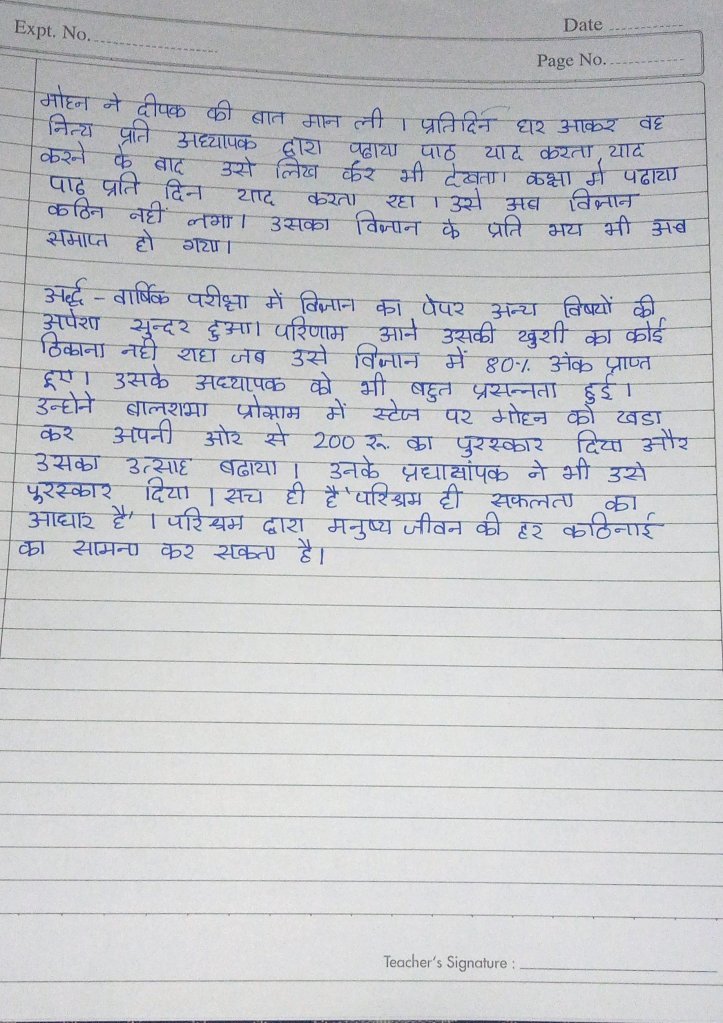 Expt. No.
Date
Page No.
मोहन ने दीपक की बात मान ली । प्रतिदिन घर आकर वह
नित्य प्रति अध्यापक द्वारा पढाया पाठ याद करता याद
करने के बाद उसे लिख कर भी देखता। कक्षा में पढाया
पाठ प्रति दिन याद करता रहा । उसे अब विज्ञान
कठिन नहीं लगा। उसका विज्ञान के प्रति भय भी अब
समाप्त हो गया।
अर्द्ध - वार्षिक परीक्षा में विज्ञान का पेपर अन्य विषयों की
अपेक्षा सुन्दर हुआ। परिणाम आने उसकी खुशी का कोई
ठिकाना नही राहा जब उसे विज्ञान में 80% अंक प्राप्त
हुए। उसके अध्यापक को भी बहुत प्रसन्नता हुई ।
उन्होने बालशभा प्रोग्राम में स्टेज पर मोहन को खडा
कर अपनी ओर से 200 रू. का पुरस्कार दिया और
उसका उत्साह बढाया । उनके प्रधाध्यांपक ने भी उसे
पुरस्कार दिया । सच ही है 'परिश्रम ही सफलता का
आधार है' । परिश्रम द्वारा मनुष्य जीवन की हर कठिनाई
का सामना कर सकता है।
Teacher's Signature :